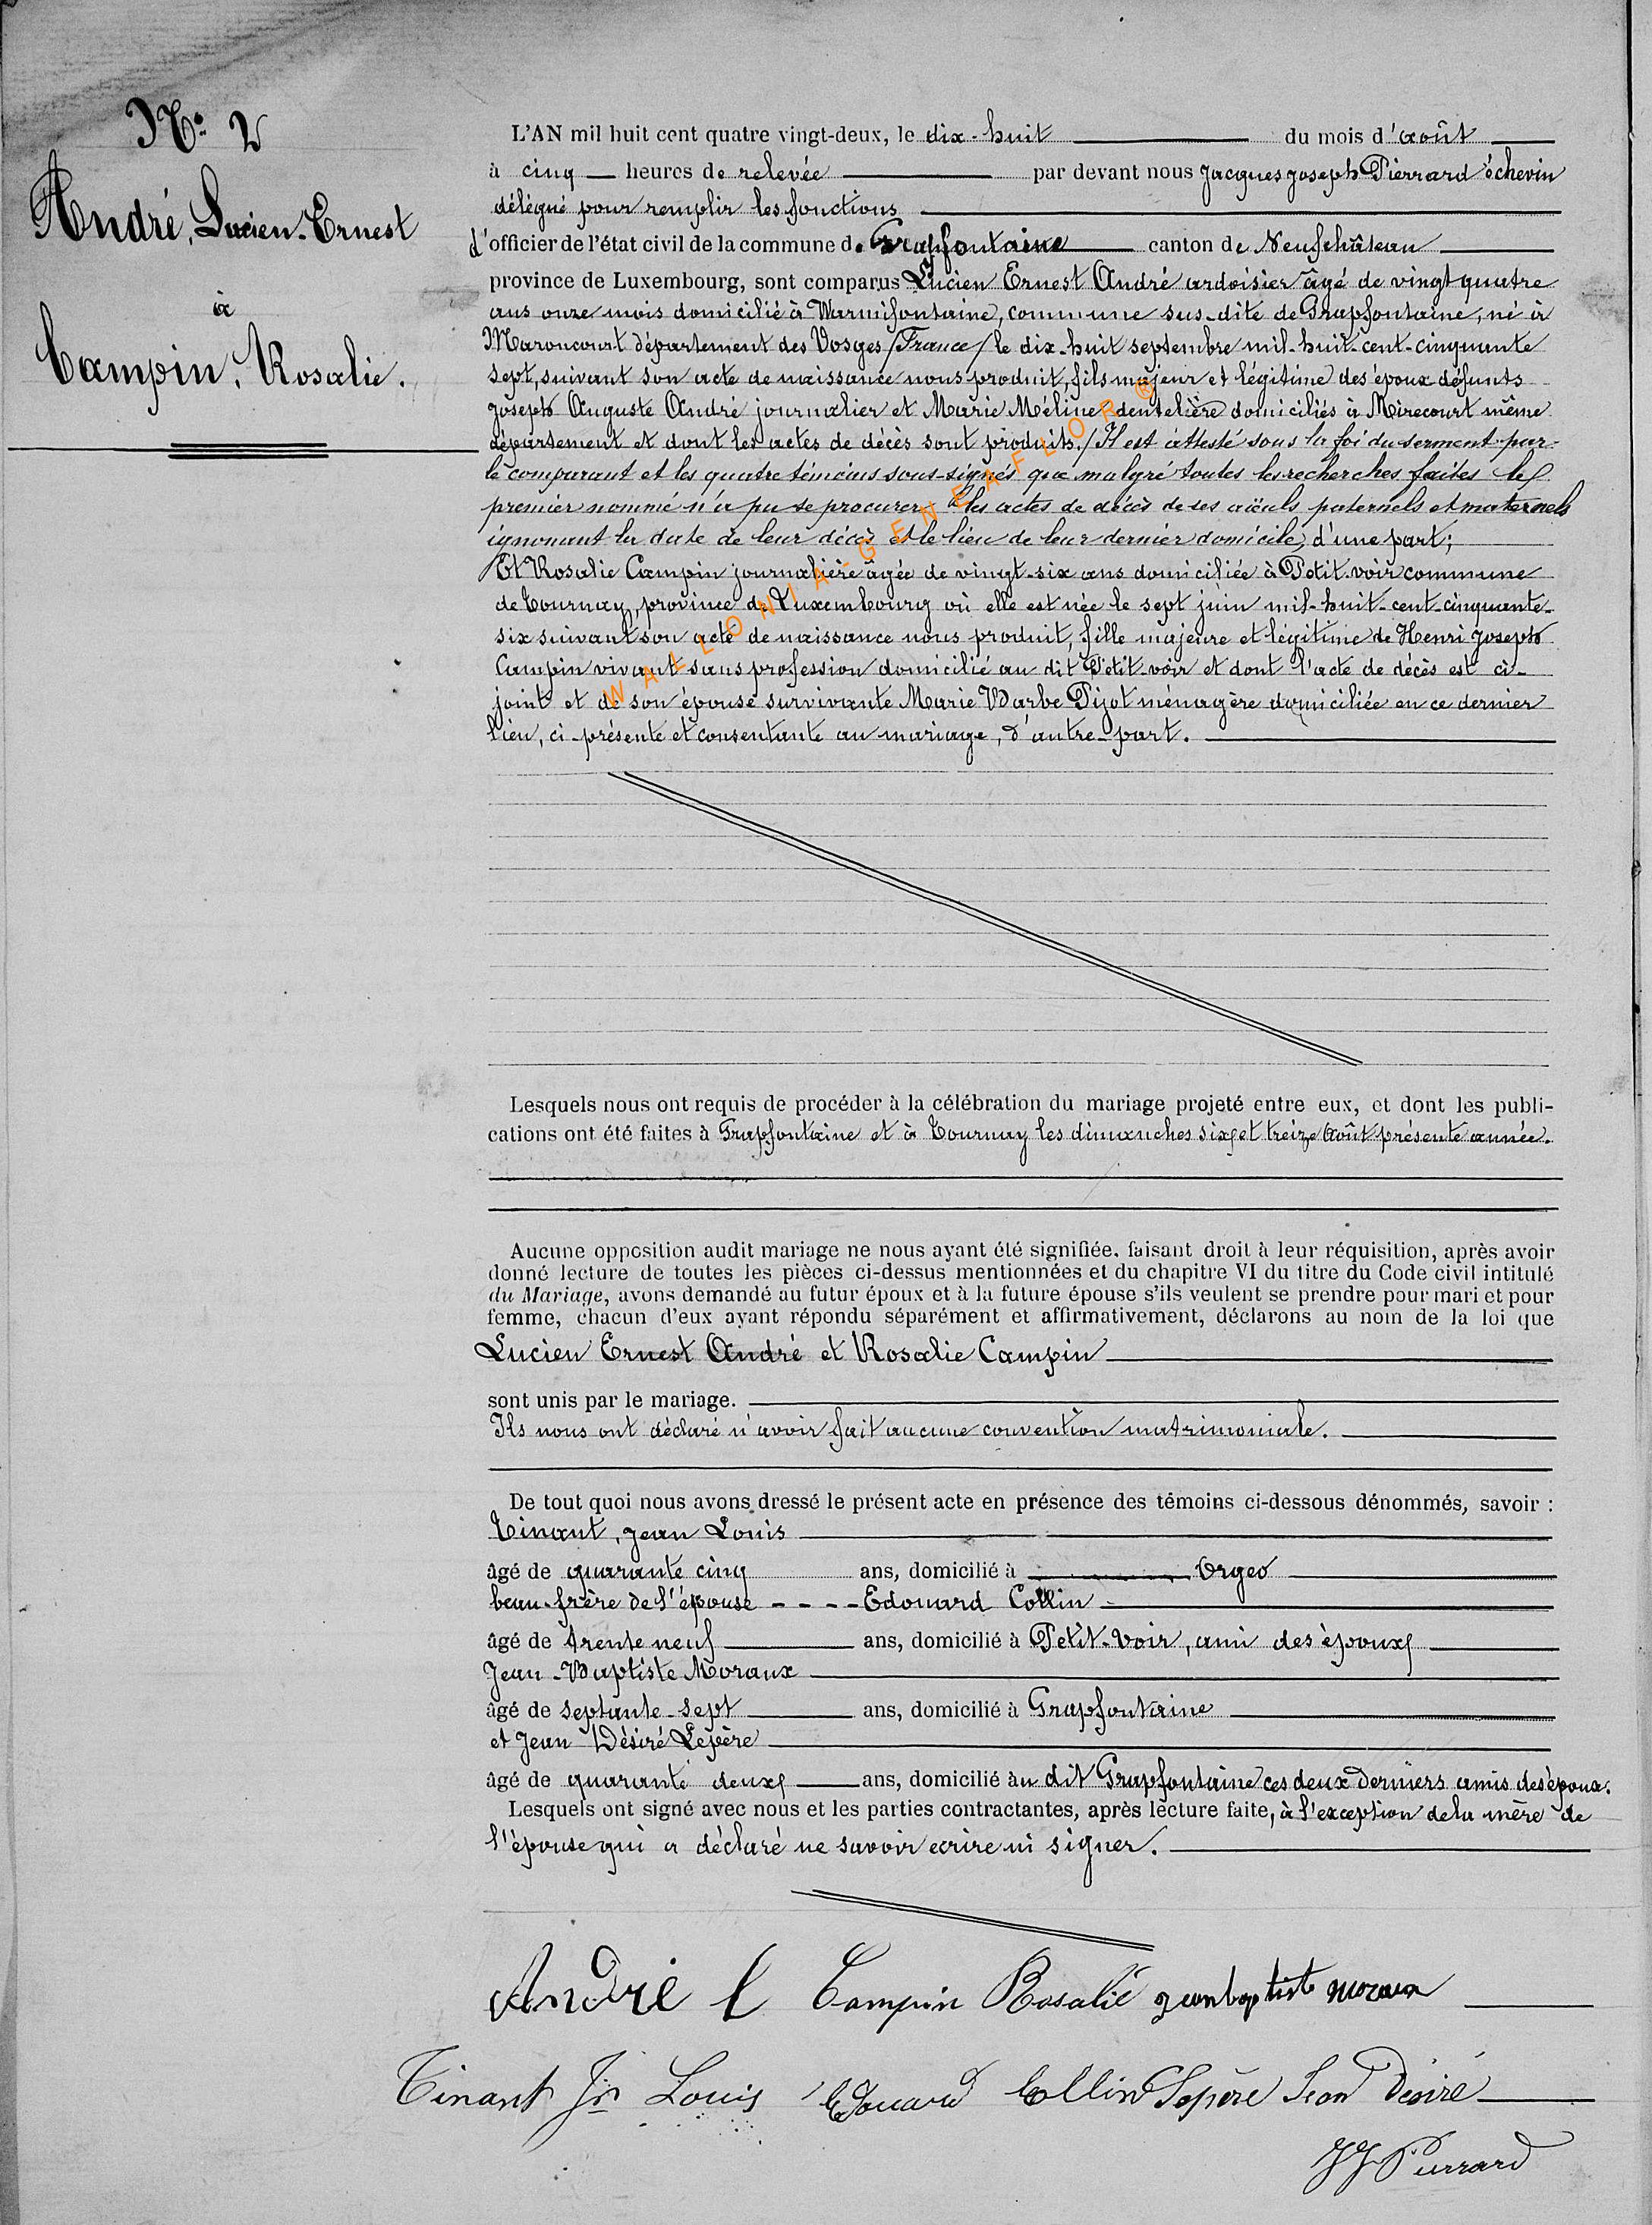 N° 2
André, Lucien-Ernest
à
Campin, Rosalie.
L'AN mil huit cent quatre vingt-deux, le dix-huit du mois d'août
à cinq heures de relevée par devant nous Jacques Joseph Pierrard échevin
délégué pour remplir les fonctions
d'officier de l'état civil de la commune de Grapfontaine canton de Neufchâteau
province de Luxembourg, sont comparus Lucien Ernest André ardoisier âgé de vingt quatre
ans onze mois domicilié à Warmifontaine, commune sus-dite de Grapfontaine, né à
Maroncourt département des Vosges (France) le dix-huit septembre mil-huit-cent-cinquante
sept, suivant son acte de naissance nous produit, fils majeur et légitime des époux défunts
Joseph Auguste André journalier et Marie Méline dentelière domiciliés à Mirecourt même
département et dont les actes de décès sont produits. / Il est attesté sous la foi du serment par
le comparant et les quatre témoins sous-signés que malgré toutes les recherches faites le
premier nommé n'a pu se procurer les actes de décès de ses aïeuls paternels et maternels
ignorant la date de leur décès et le lieu de leur dernier domicile, d'une part;
Et Rosalie Campin journalière âgée de vingt-six ans domiciliée à Petit-voir commune
de Tournay, province de Luxembourg où elle est née le sept juin mil-huit-cent-cinquante-
six suivant son acte de naissance nous produit, fille majeure et légitime de Henri Joseph
Campin vivant sans profession domicilié au dit Petit-voir et dont l'acte de décès est ci-
joint et de son épouse survivante Marie Barbe Pijot ménagère domiciliée en ce dernier
lieu, ci-présente et consentante au mariage, d'autre-part.
WALLONIA-GENEAFLOR ®
Lesquels nous ont requis de procéder à la célébration du mariage projeté entre eux, et dont les publi-
cations ont été faites à Grapfontaine et à Tournay les dimanches six et treize Août présente année.
Aucune opposition audit mariage ne nous ayant été signifiée, faisant droit à leur réquisition, après avoir
donné lecture de toutes les pièces ci-dessus mentionnées et du chapitre VI du titre du Code civil intitulé
du Mariage, avons demandé au futur époux et à la future épouse s'ils veulent se prendre pour mari et pour
femme, chacun d'eux ayant répondu séparément et affirmativement, déclarons au nom de la loi que
Lucien Ernest André et Rosalie Campin
sont unis par le mariage.
Ils nous ont déclaré n'avoir fait aucune convention matrimoniale.
De tout quoi nous avons dressé le présent acte en présence des témoins ci-dessous dénommés, savoir :
Tinant, Jean Louis
âgé de quarante cinq ans, domicilié à Orgeo
beau-frère de l'épouse - - - - Edouard Collin
âgé de trente neuf ans, domicilié à Petit-Voir, ami des époux
Jean-Baptiste Moraux
âgé de septante-sept ans, domicilié à Grapfontaine
et Jean Désiré Lepère
âgé de quarante deux ans, domicilié au dit Grapfontaine ces deux derniers amis des époux.
Lesquels ont signé avec nous et les parties contractantes, après lecture faite, à l'exception de la mère de
l'épouse qui a déclaré ne savoir écrire ni signer.
André L Campin Rosalie jean baptiste moraux
Tinant Jn Louis Edouard Collin Lepère Jean Désiré
JJ Pierrard